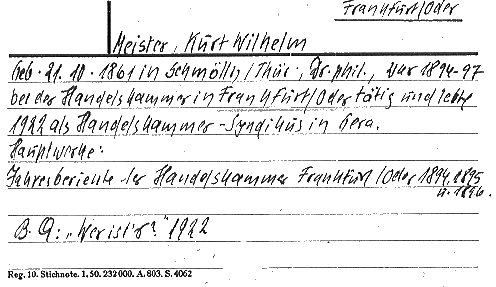 Frankfurt/Oder
Meister, Kurt Wilhelm
Geb. 21. 10. 1861 in Schmölln/Thür., Dr. phil., war 1894-97
bei der Handelskammer in Frankfurt/Oder tätig und lebte
1922 als Handelskammer-Syndikus in Gera.
Hauptwerke:
Jahresberichte der Handelskammer Frankfurt/Oder 1894, 1895
u. 1896.
B. Q.: „Wer ist's?" 1922
Reg. 10. Stichnote. 1. 50. 232000. A. 803. S. 4062